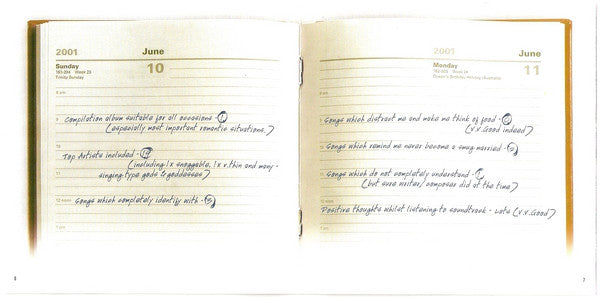 2001 June
Sunday 10
161-204 Week 23
Trinity Sunday
8 am
9 Compilation album suitable for all occasions -
(especially most important romantic situations.)
10
Top Artists included -
(including 1x snoggable, 1x v.thin and many -
11 singing type gods & goddesses)
12 noon Songs which completely identify with -
1 pm
8
2001 June
Monday 11
Week 24
Queen's Birthday Holiday (Australia)
8 am
9 Songs which distract me and make me think of food -
(v.v.Good indeed)
10 Songs which remind me never become a smug married -
11 Songs which do not completely understand -
(but sure writer/ composer did at the time)
12 noon Positive thoughts whilst listening to soundtrack - Lots (v.v.Good)
1 pm
7